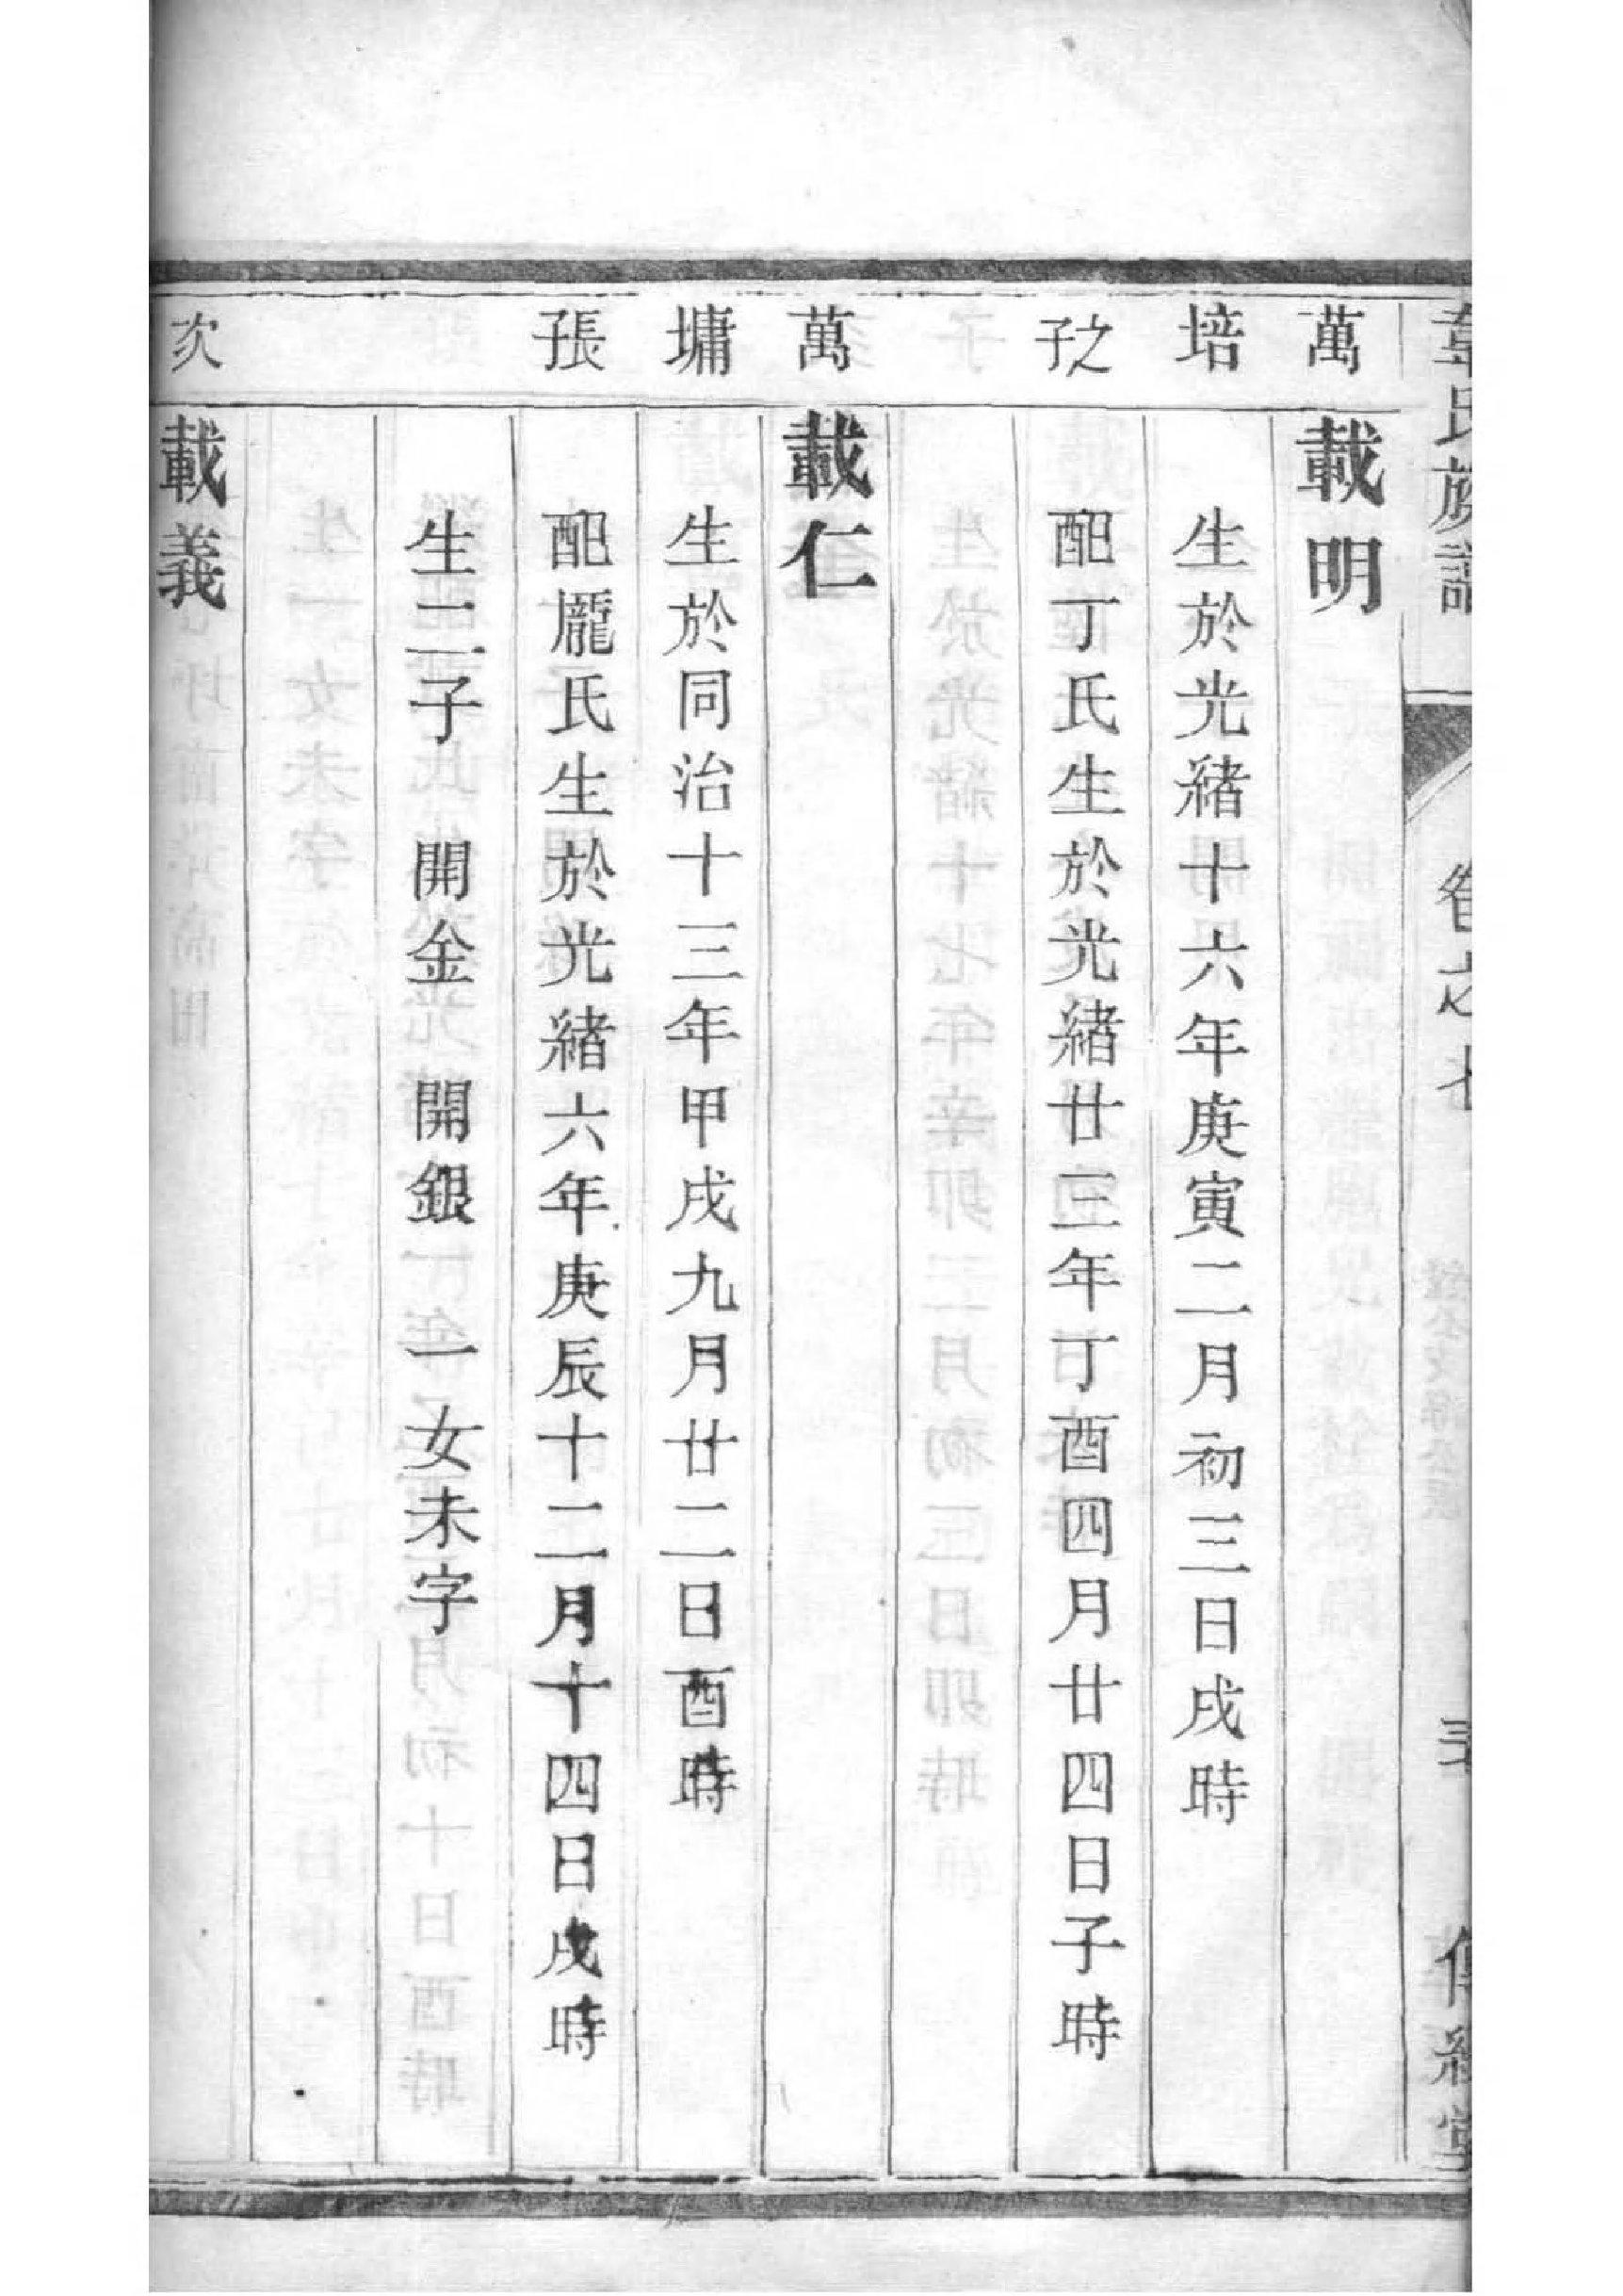 韋氏族譜
卷之七
傳經堂
萬
載明
培
生於光緒十六年庚寅二月初三日戌時
之子
配丁氏生於光緒廿三年丁酉四月廿四日子時
萬
載仁
墉
生於同治十三年甲戌九月廿二日酉時
長子
配龐氏生於光緒六年庚辰十二月十四日戌時
生二子 開金 開銀 一女未字
次
載義